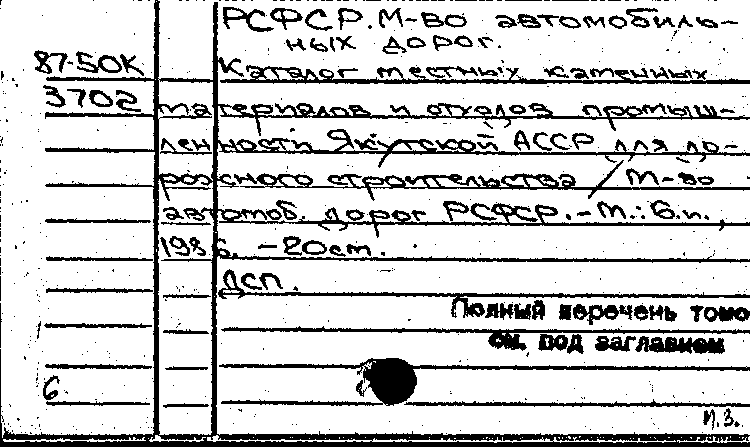 РСФСР. М-во автомобиль-
ных дорог.
87-50К Каталог местных каменных
3702 материалов и отходов промыш-
ленности Якутской АССР для до-
рожного строительства / М-во
автомоб. дорог РСФСР. - М.: Б.и.,
1986. - 20см.
ДСП.
Полный перечень томо
см. под заглавием
6
И.З.